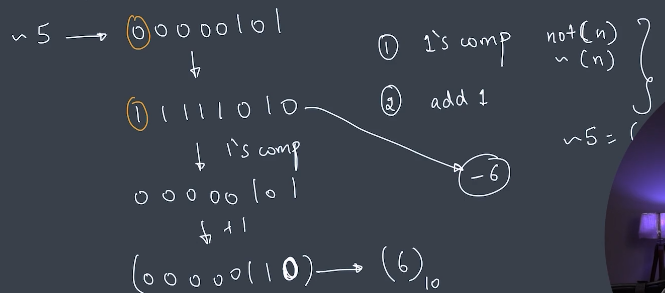 ~5 → 00000101
↓
11111010 → -6
↓ 1's comp
00000101
↓ +1
(00000110) → (6)10
① 1's comp not(n)
~(n)
② add 1
~5 = (